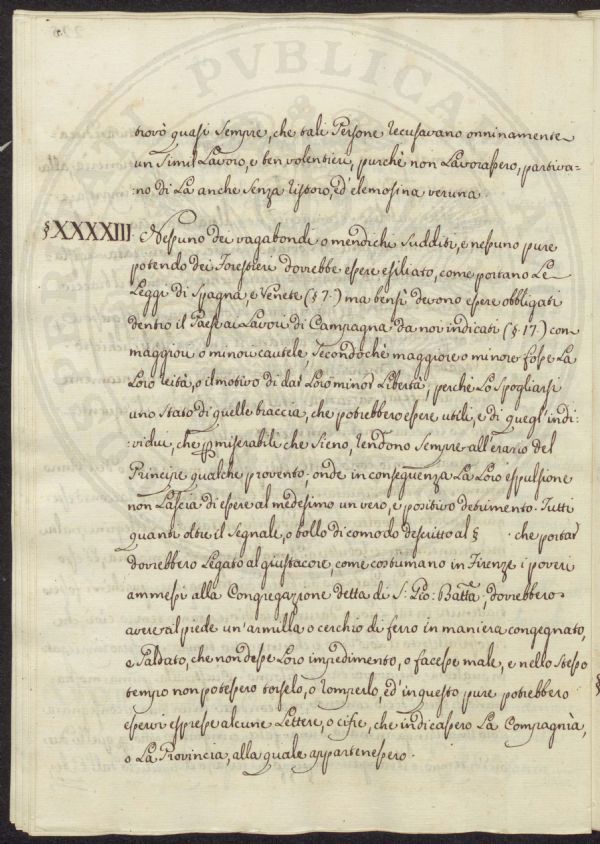 trovò quasi sempre, che tali Persone recusavano onninamente
un simil Lavoro, e ben volentieri, purchè non Lavorassero, partiva=
:no di La anche senza ristoro, ed elemosina veruna
§XXXXIII. Nessuno dei vagabondi o mendichi sudditi, e nessuno pure
potendo dei Forestieri dovrebbe essere esiliato, come portano Le
Leggi di Spagna, e Venete (§ 7.) ma bensì devono essere obbligati
dentro il Paese ai Lavori di Campagna da noi indicati (§. 17.) con
maggiori o minori cautele, secondochè maggiore o minore fosse La
Loro reità, o il motivo di dar Loro minor Libertà, perchè Lo spogliarsi
uno stato di quelle braccia, che potrebbero essere utili, e di quegl'indi:
:vidui, che miserabili che sieno, rendono sempre all'erario del
Principe qualche provento, onde in conseguenza La Loro espulsione
non Lascia di essere al medesimo un vero, e positivo detrimento. Tutti
quanti oltre il segnale, o bollo di comodo descritto al § . che portar
dovrebbero Legato al giustacore, come costumano in Firenze i poveri
ammessi alla Congregazione detta di S: Gio: Batta, dovrebbero
avere al piede un'armilla o cerchio di ferro in maniera congegnato,
e saldato, che non desse Loro impedimento, o facesse male, e nello stesso
tempo non potessero torselo, o romperlo, ed in questo pure potrebbero
esservi espresse alcune Lettere, o cifre, che indicassero La Compagnia,
o La Provincia, alla quale appartenessero.
PVBLICA